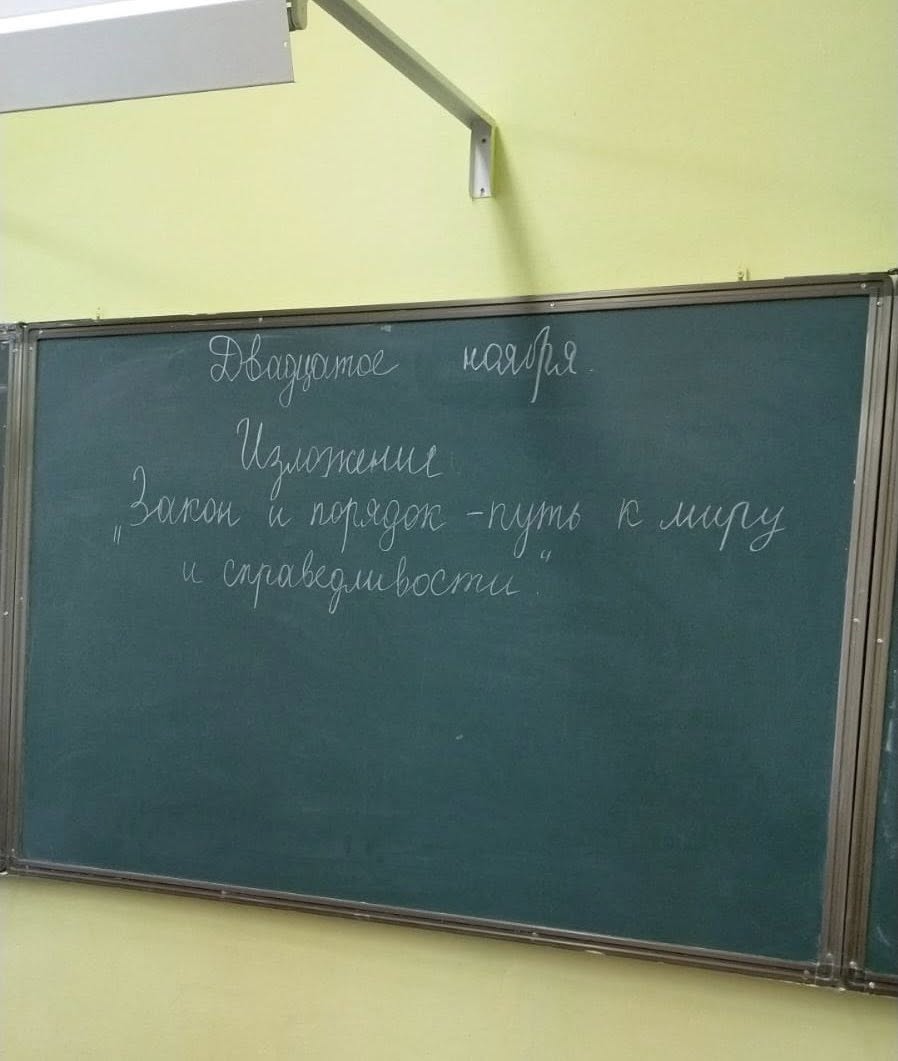 Двадцатое ноября.
Изложение
„Закон и порядок - путь к миру
и справедливости“.